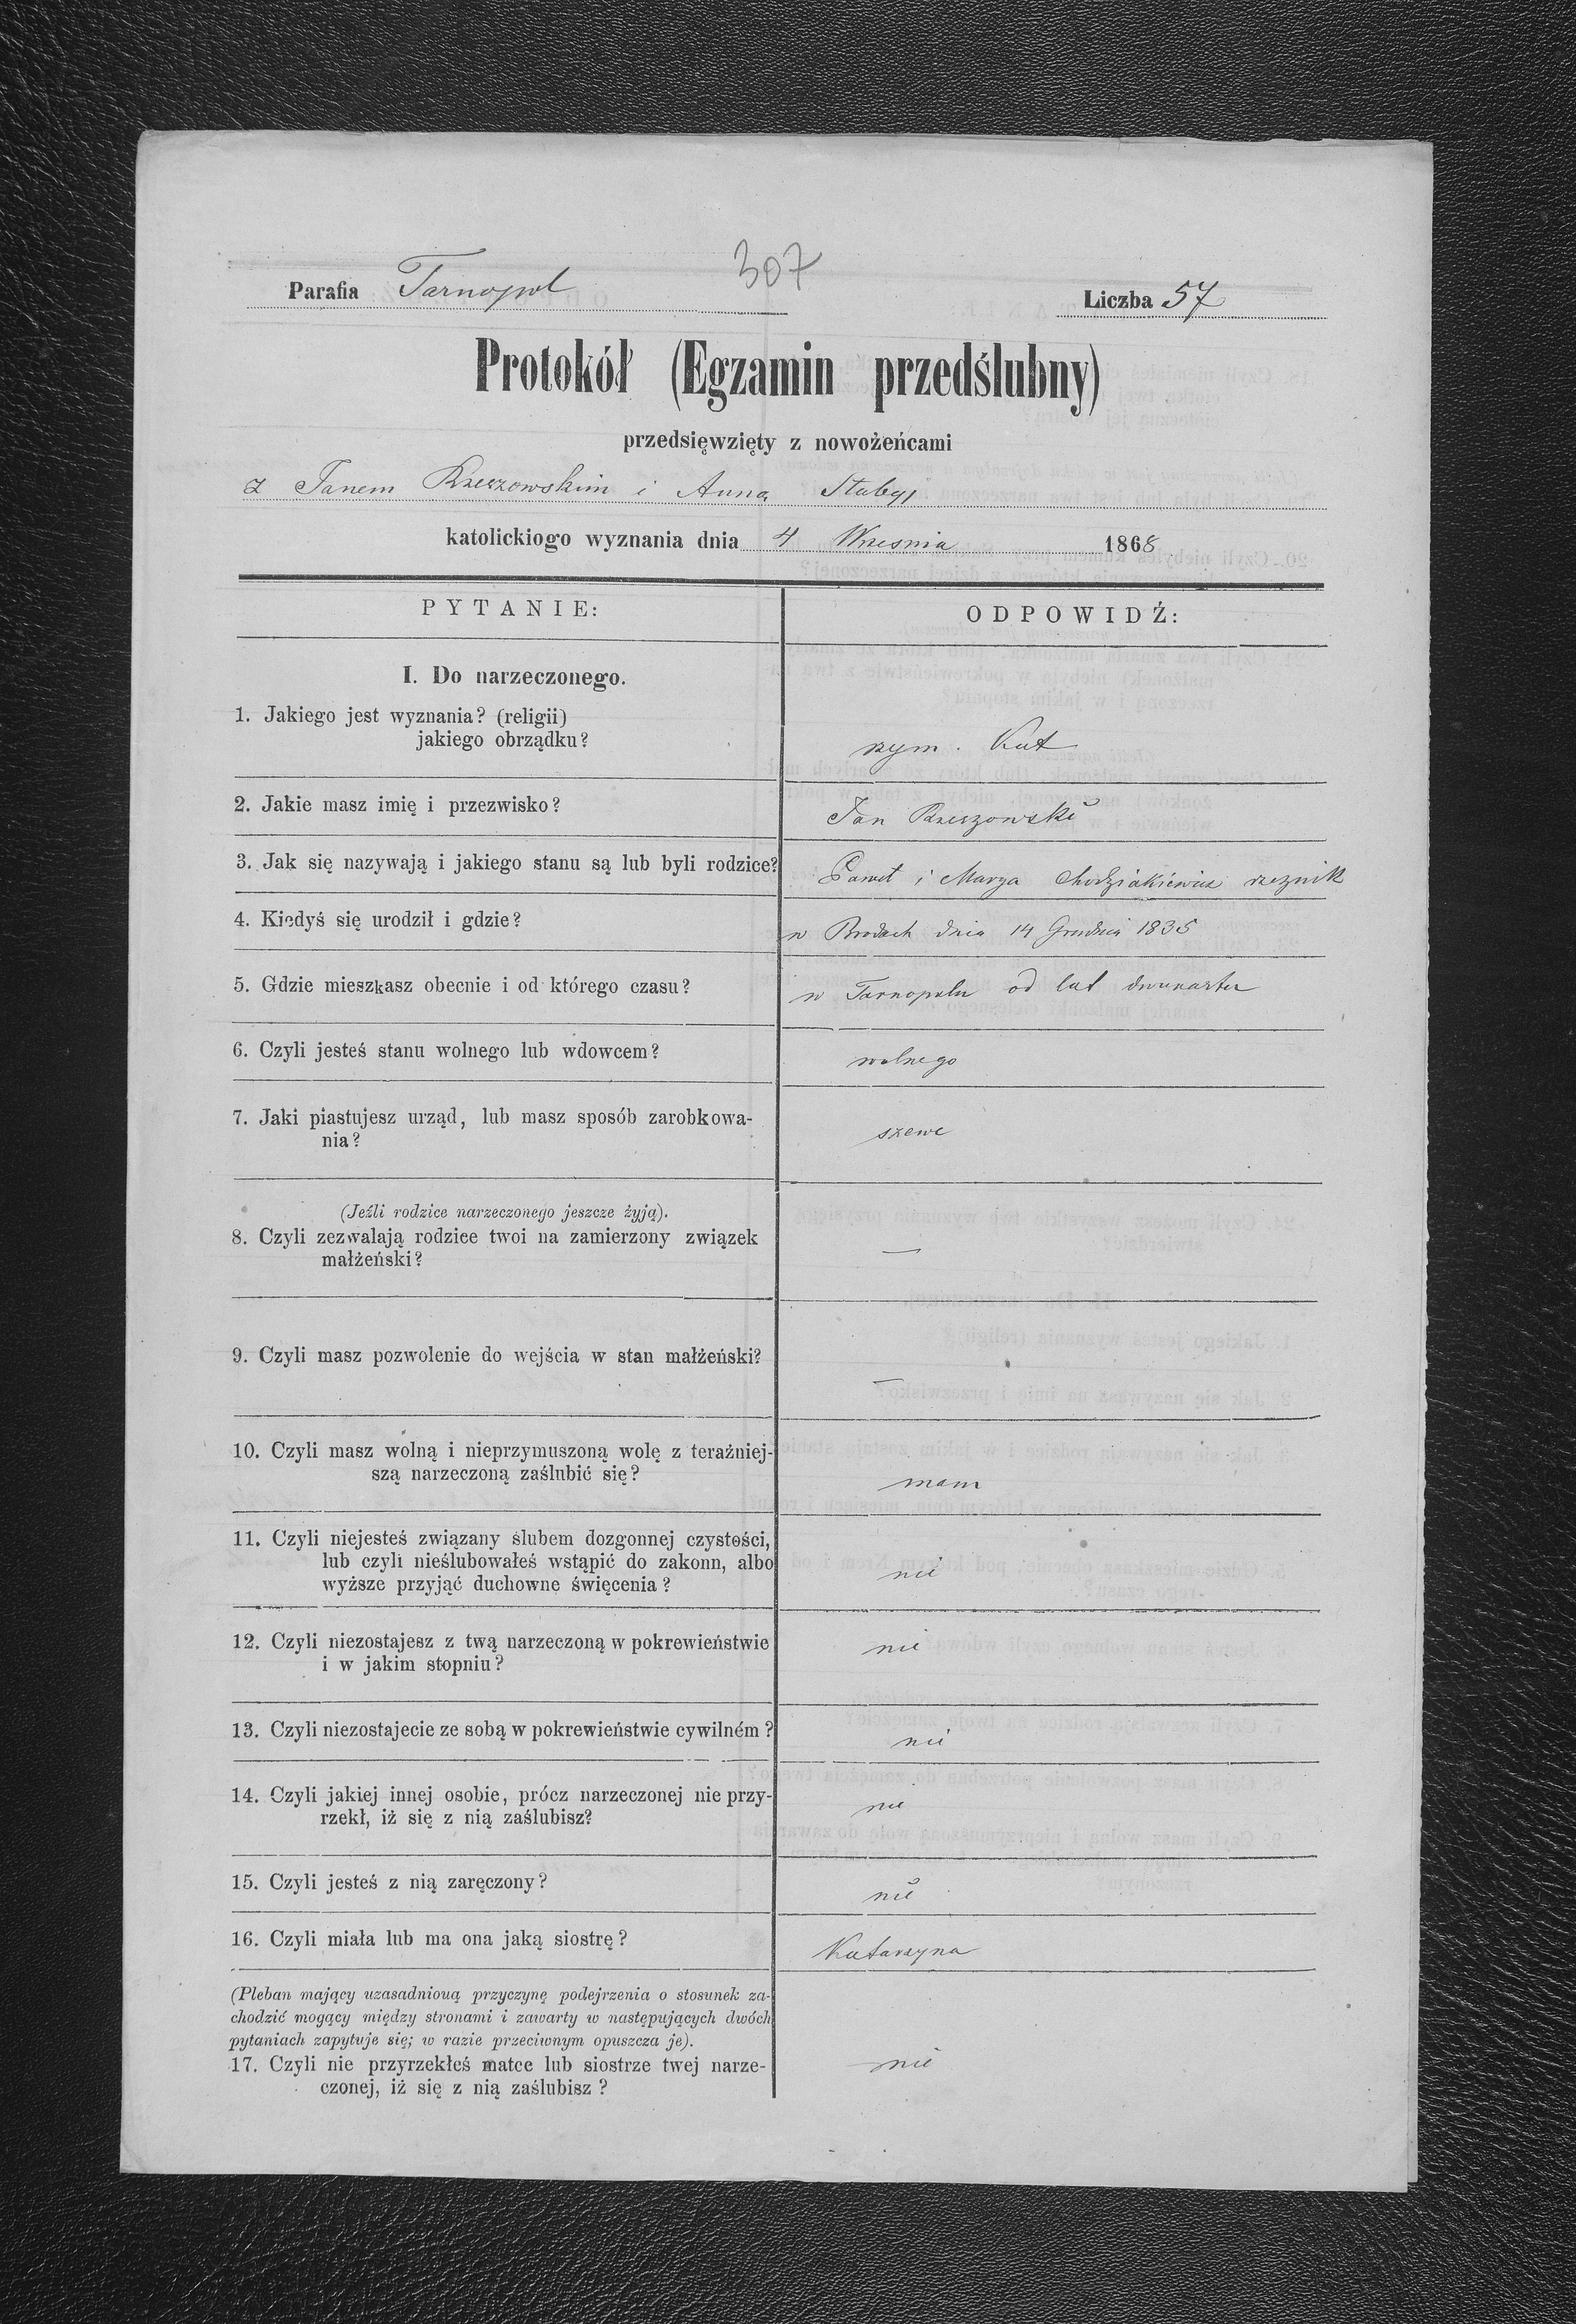 307
Parafia Tarnopol Liczba 57
Protokół (Egzamin przedślubny)
przedsięwzięty z nowożeńcami
z Janem Rzeszowskim i Anną
katolickiogo wyznania dnia 4 Wrzesnia 1868
PYTANIE: ODPOWIDŹ:
I. Do narzeczonego.
1. Jakiego jest wyznania? (religii)
jakiego obrządku? rzym. Kat
2. Jakie masz imię i przezwisko? Jan Rzeszowski
3. Jak się nazywają i jakiego stanu są lub byli rodzice? Paweł i Marya rzeznik
4. Kiedyś się urodził i gdzie? w Brodach dnia 14 Grudnia 1835
5. Gdzie mieszkasz obecnie i od którego czasu? w Tarnopolu od lat dwunastu
6. Czyli jesteś stanu wolnego lub wdowcem? wolnego
7. Jaki piastujesz urząd, lub masz sposób zarobkowa-
nia? szewc
(Jeźli rodzice narzeczonego jeszcze żyją).
8. Czyli zezwalają rodzice twoi na zamierzony związek
małżeński? —
9. Czyli masz pozwolenie do wejścia w stan małżeński? —
10. Czyli masz wolną i nieprzymuszoną wolę z teraźniej-
szą narzeczoną zaślubić się? mam
11. Czyli niejesteś związany ślubem dozgonnej czystości,
lub czyli nieślubowałeś wstąpić do zakonn, albo
wyższe przyjąć duchowne święcenia? nie
12. Czyli niezostajesz z twą narzeczoną w pokrewieństwie
i w jakim stopniu? nie
13. Czyli niezostajecie ze sobą w pokrewieństwie cywilném? nie
14. Czyli jakiej innej osobie, prócz narzeczonej nie przy-
rzekł, iż się z nią zaślubisz? nie
15. Czyli jesteś z nią zaręczony? nie
16. Czyli miała lub ma ona jaką siostrę? Katarzyna
(Pleban mający uzasadniouą przyczynę podejrzenia o stosunek za-
chodzić mogący między stronami i zawarty w następujących dwóch
pytaniach zapytuje się; w razie przeciwnym opuszcza je).
17. Czyli nie przyrzekłeś matce lub siostrze twej narze-
czonej, iż się z nią zaślubisz? nie